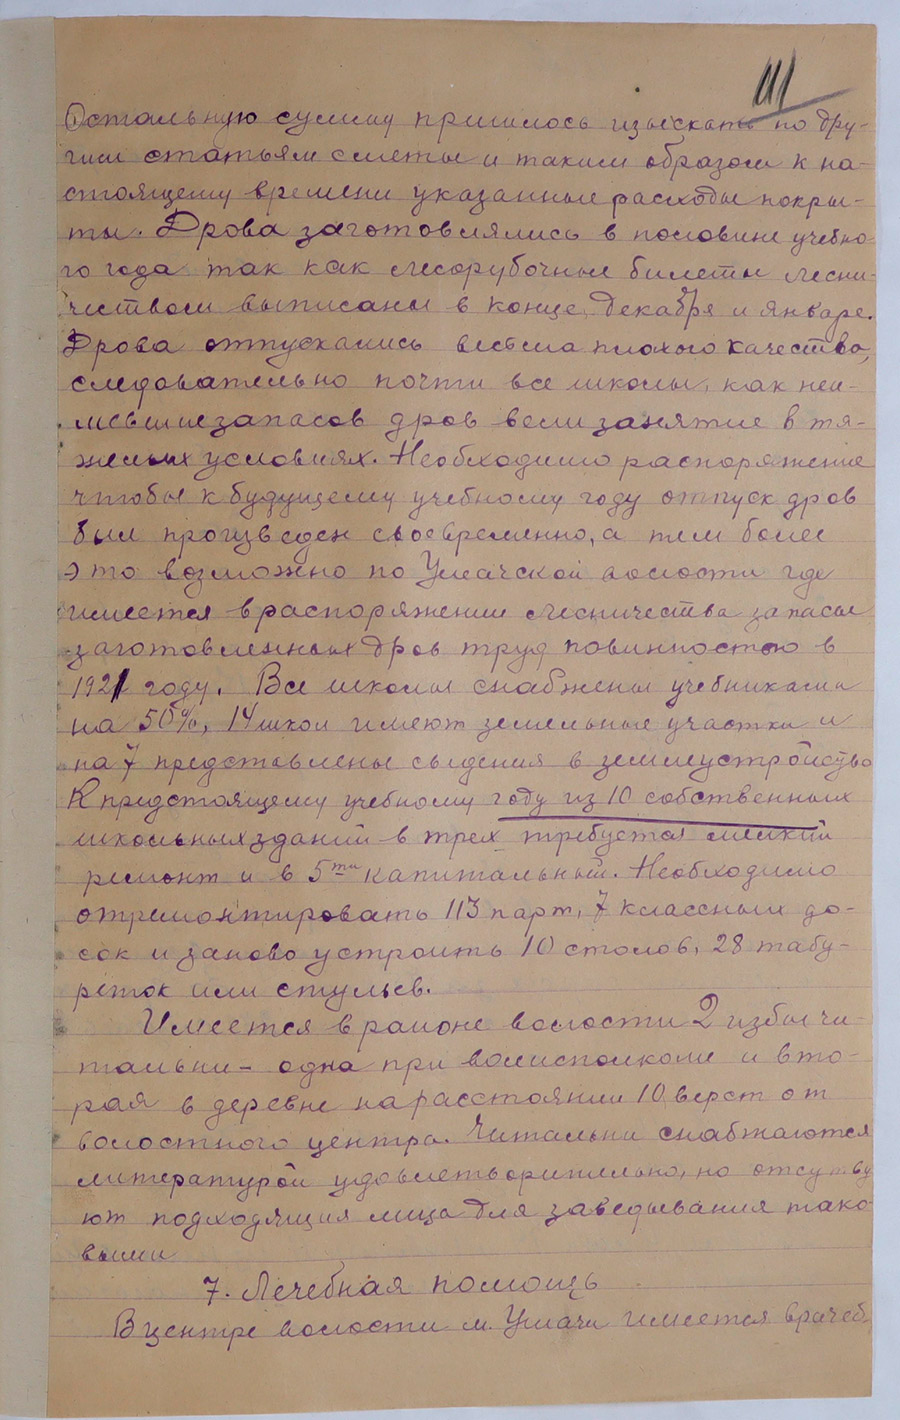 111
Остальную сумму пришлось изыскать по дру-
гим статьям сметы и таким образом к на-
стоящему времени указанные расходы покры-
ты. Дрова заготовлялись в половине учебно-
го года так как лесорубочные билеты лесни-
чеством выписаны в конце декабря и январе.
Дрова отпускались весьма плохого качества,
следовательно почти все школы, как неи-
мевшие запасов дров вели занятие в тя-
желых условиях. Необходимо распоряжение
чтобы к будущему учебному году отпуск дров
был произведен своевременно, а тем более
это возможно по Ушачской волости где
имеется в распоряжении лесничества запасы
заготовленных дров труд повинностью в
1921 году. Все школы снабжены учебниками
на 50%, 14 школ имеют земельные участки и
на 7 представлены сведения в землеустройство
К предстоящему учебному году из 10 собственных
школьных зданий в трех требуется мелкий
ремонт и в 5ти капитальный. Необходимо
отремонтировать 113 парт, 7 классных до-
сок и заново устроить 10 столов, 28 табу-
реток или стульев.
Имеется в районе волости 2 избы чи-
тальни - одна при волисполкоме и вто-
рая в деревне на расстоянии 10 верст от
волостного центра. Читальни снабжаются
литературой удовлетворительно, но отсутству
ют подходящия лица для заведывания тако-
выми
7. Лечебная помощь
В центре волости м. Ушачи имеется врачеб